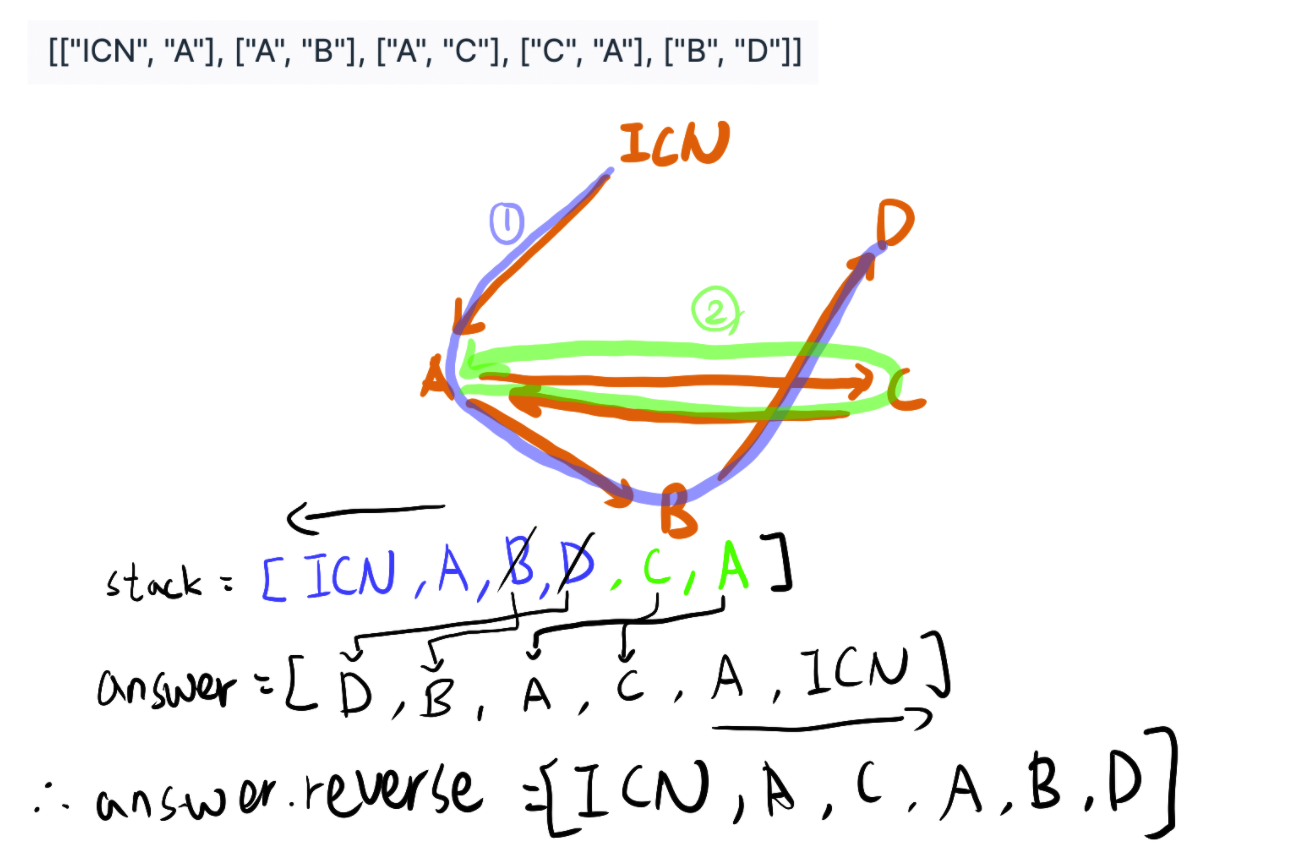 [["ICN", "A"], ["A", "B"], ["A", "C"], ["C", "A"], ["B", "D"]]
ICN
①
D
②
A
C
B
stack = [ICN, A, B, D, C, A]
answer = [D, B, A, C, A, ICN]
∴ answer.reverse = [ICN, A, C, A, B, D]